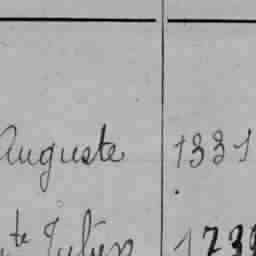 Auguste 1331
te Julien 173